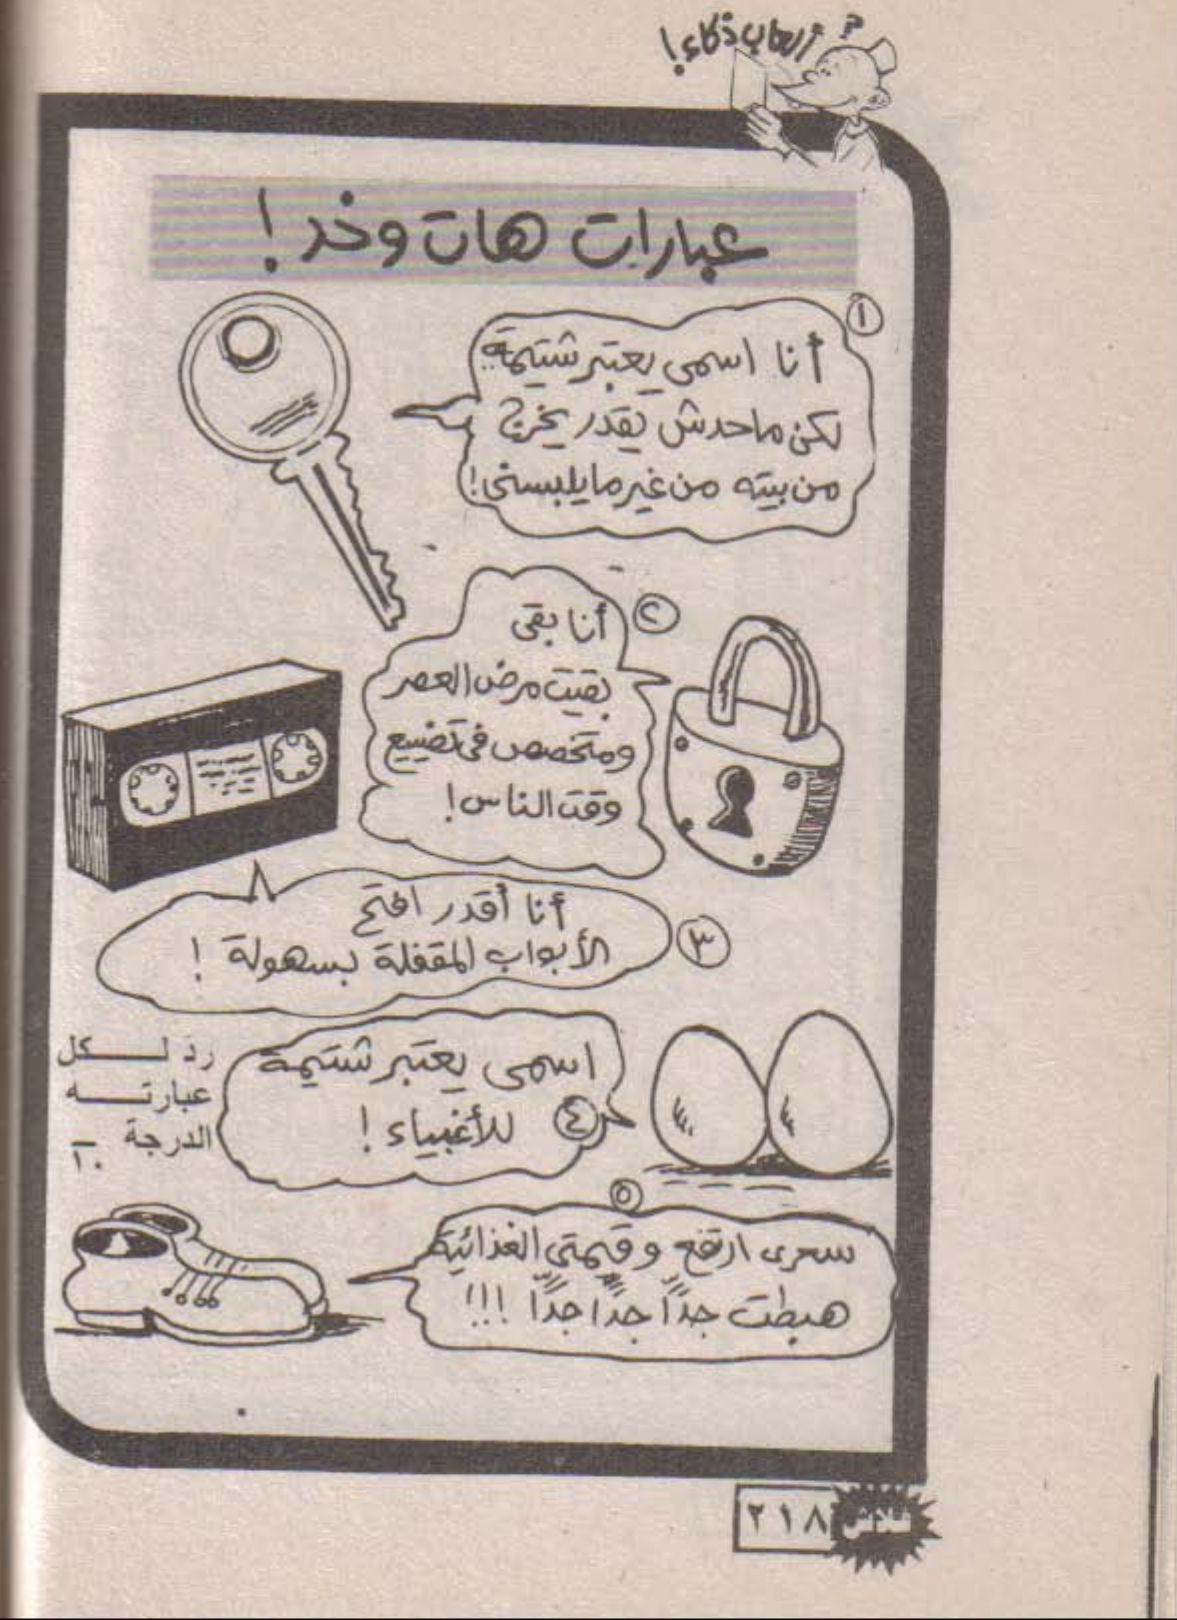 ألعاب ذكاء!
عبارات هات وخد!
١
أنا اسمى يعتبر شتيمة..
لكن ماحدش يقدر يخرج
من بيته من غير مايلبسنى!
٢
أنا بقى
بقيت مرض العصر
ومتخصص فى تضييع
وقت الناس!
٣
أنا أقدر افتح
الأبواب المقفلة بسهولة!
٤
اسمى يعتبر شتيمة
للأغبياء!
رد لكل
عبارته
الدرجة ١٠
٥
سعرى ارتفع وقيمتى الغذائية
هبطت جدًا جدًا جدًا!!!
فلاش
٢١٨